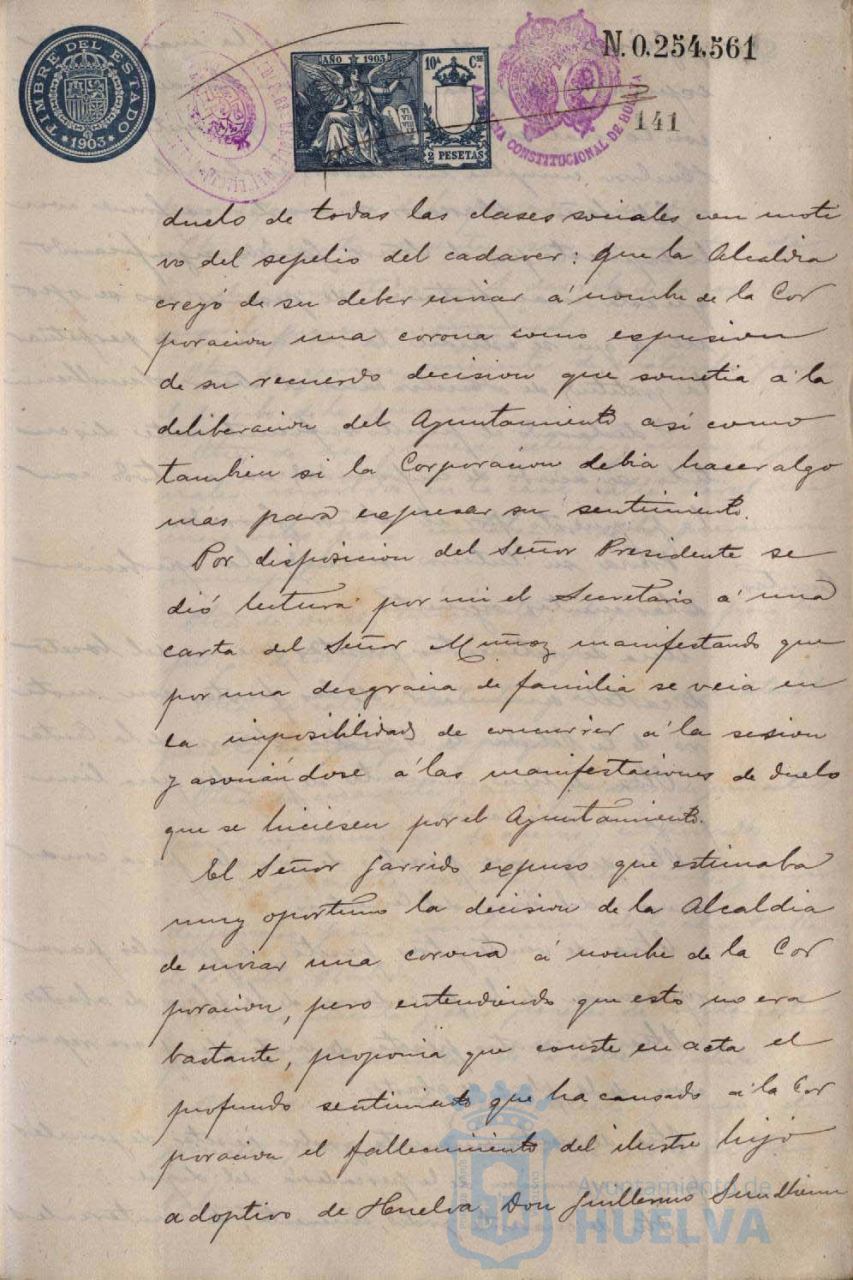 TIMBRE DEL ESTADO
*1903*
AÑO 1903
10ª Cse
2 PESETAS
ALCALDIA CONSTITUCIONAL DE
N.0.254,561
141
duelo de todas las clases sociales con moti
vo del sepelio del cadaver: Que la Alcaldia
creyó de su deber enviar á nombre de la Cor
poracion una corona como expresion
de su recuerdo decision que sometia á la
deliberacion del Ayuntamiento así como
tambien si la Corporacion debia hacer algo
mas para expresar su sentimiento.
Por disposicion del Señor Presidente se
dió lectura por mi el Secretario á una
carta del Señor Muñoz manifestando que
por una desgracia de familia se veia en
la imposibilidad de concurrir á la sesion
y asociándose á las manifestaciones de duelo
que se hiciesen por el Ayuntamiento.
El Señor Garrido expuso que estimaba
muy oportuno la decision de la Alcaldia
de enviar una corona á nombre de la Cor
poracion, pero entendiendo que esto no era
bastante, proponia que conste en acta el
profundo sentimiento que ha causado á la Cor
poracion el fallecimiento del ilustre hijo
adoptivo de Huelva Don Guillermo Sundheim
Ayuntamiento de
HUELVA